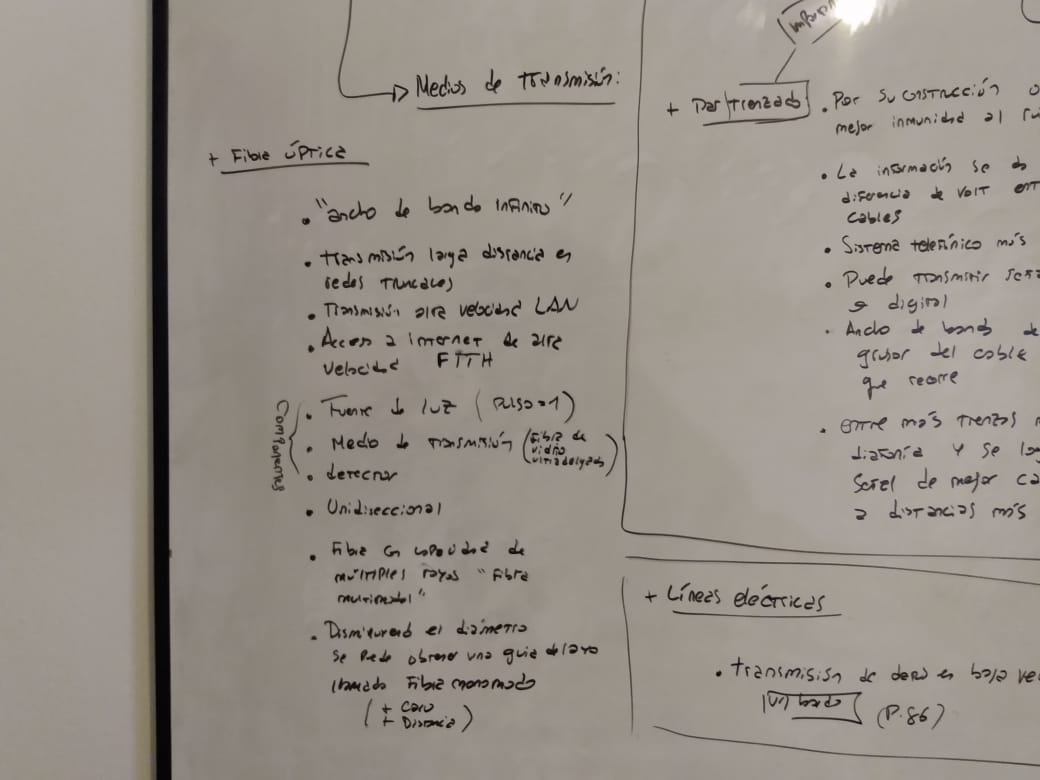 Medios de Transmisión:
+ Fibra óptica
• "ancho de banda infinito"
• transmisión larga distancia en
redes truncales
• Transmisión alta velocidad LAN
• Acceso a internet de alta
velocidad FTTH
Componentes
• Fuente de luz (Pulso = 1)
• Medio de transmisión (Fibra de
vidrio
ultradelgada)
• detector
• Unidireccional
• Fibra con capacidad de
múltiples rayos "Fibra
multimodal"
• Disminuyendo el diámetro
se puede obtener una guia de
llamado Fibra monomodo
(+ Caro
+ Distancia)
+ Par trenzado
• Por su construcción
mejor inmunidad al
• La información se da
diferencia de volt
cables
• Sistema telefónico más
• Puede transmitir
digital
• Ancho de banda de
grosor del cable
que recorre
• entre más trenzas
diafonía y se
señal de mejor
a distancias más
+ Líneas eléctricas
• transmisión de datos en baja
(P.86)